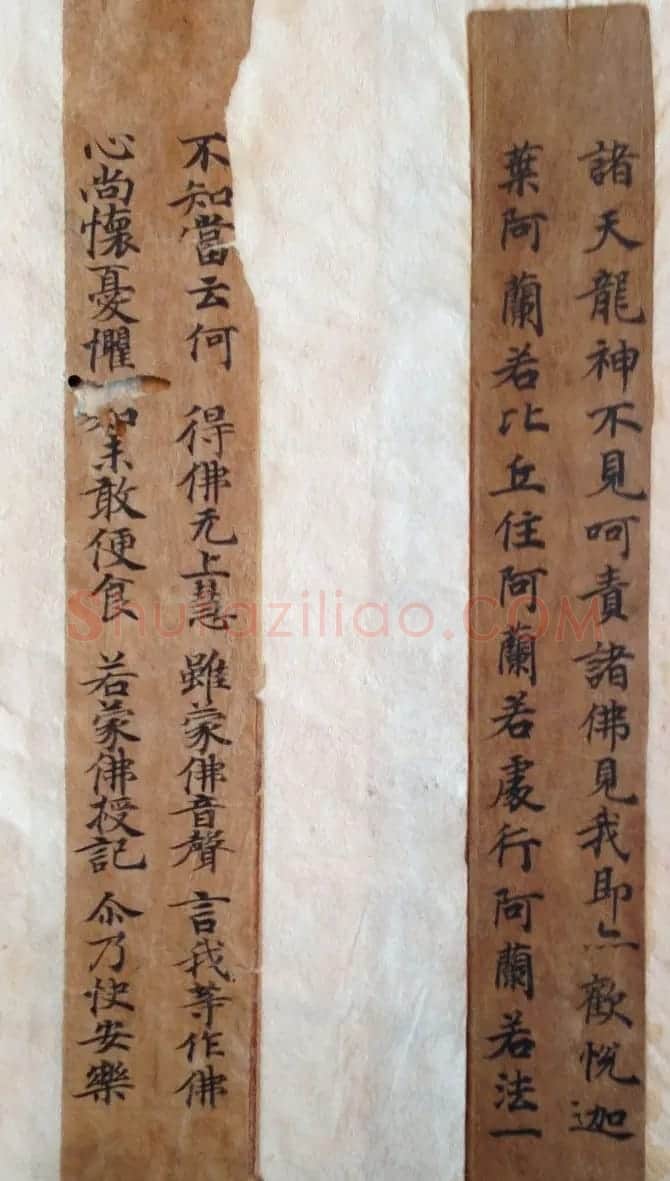 諸天龍神不見呵責諸佛見我即亦歡悅迦
葉阿蘭若比丘住阿蘭若處行阿蘭若法一
不知當云何 得佛无上慧 雖蒙佛音聲 言我等作佛
心尚懷憂懼 如未敢便食 若蒙佛授記 尒乃快安樂
Shufaziliao.COM